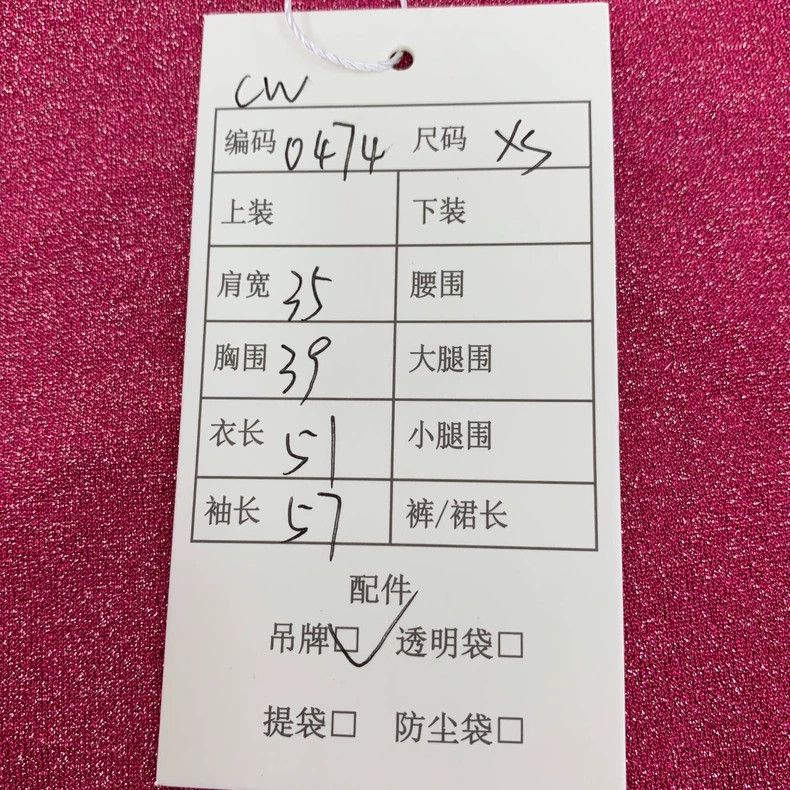 CW
编码 0474 尺码 XS
上装 下装
肩宽 35 腰围
胸围 39 大腿围
衣长 51 小腿围
袖长 57 裤/裙长
配件
吊牌□✓ 透明袋□
提袋□ 防尘袋□